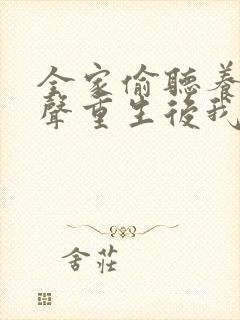 全家偷聽養
聲重生後我
舍莊